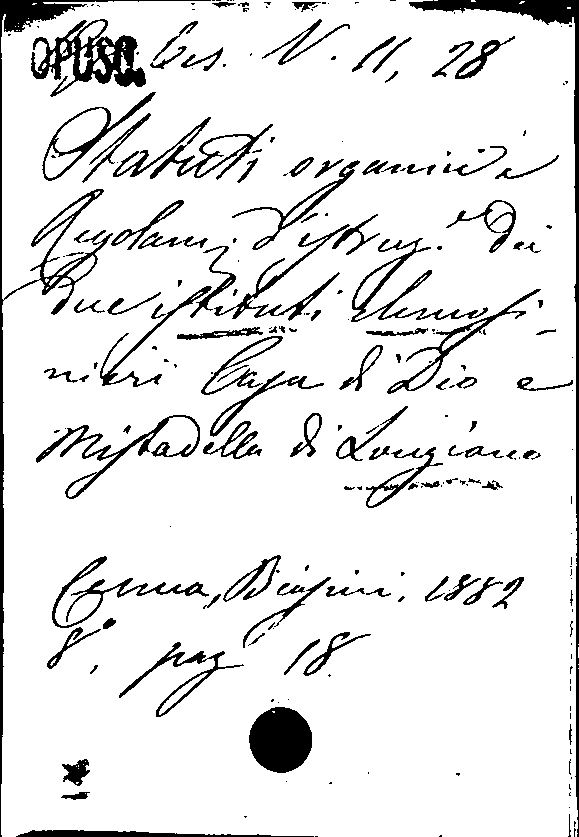 OPUSC. Ces. N. 11, 28
Statuti organici e
Regolam. d'istruz.e dei
due istituti elemosi-
nieri Casa di Dio e
Mistadella di Longiano
Cesena, Biasini, 1882
8°, pag 18.